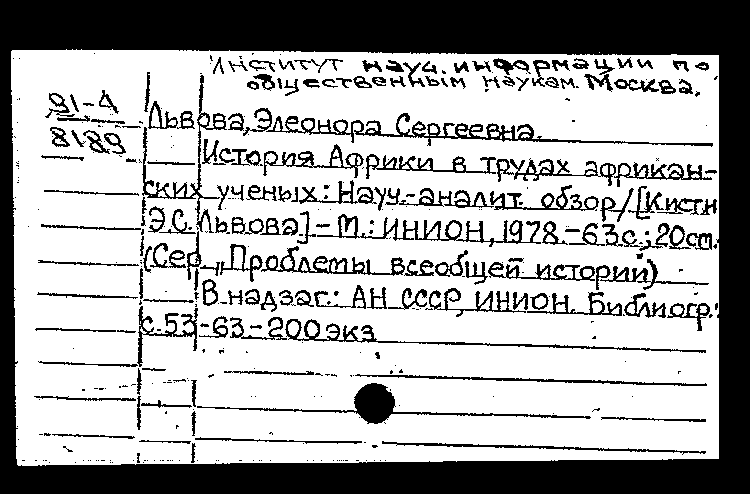 Институт науч. информации по
общественным наукам. Москва.
91-4
8189
Львова, Элеонора Сергеевна.
История Африки в трудах африкан-
ских ученых: Науч.-аналит. обзор/[Кистн
Э.С. Львова]-М.: ИНИОН, 1978.-63с.; 20см.
(Сер „Проблемы всеобщей истории)
В надзаг.: АН СССР, ИНИОН. Библиогр.:
с.53-63-200экз